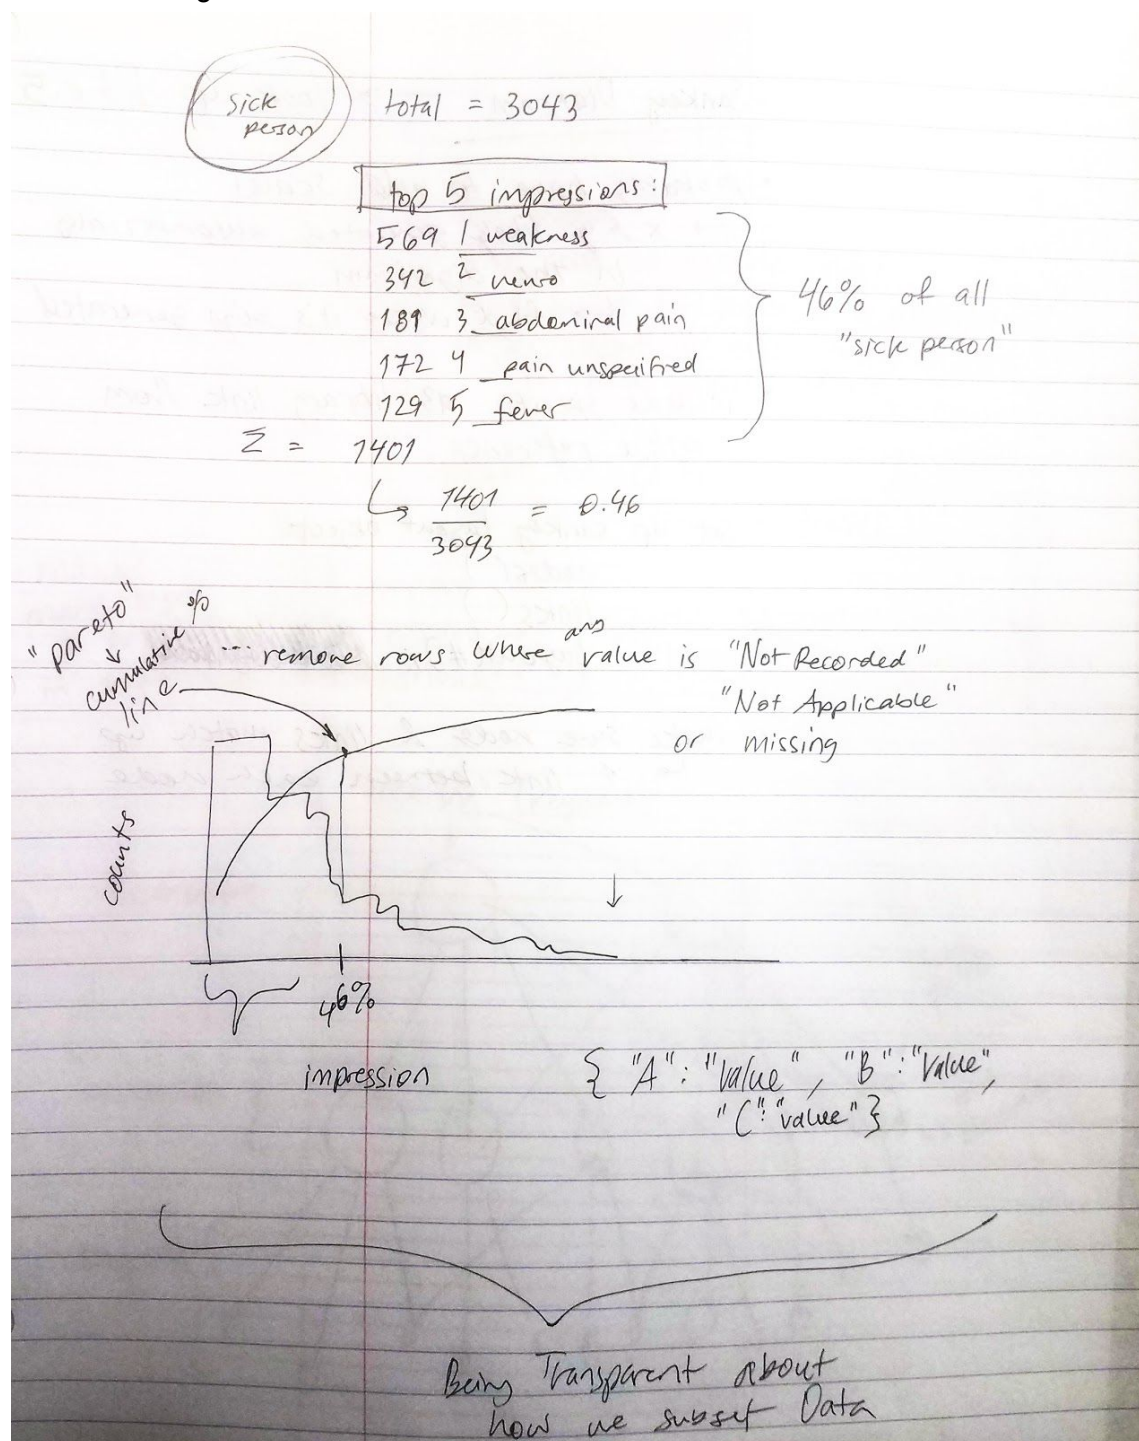 sick person
total = 3043
top 5 impressions:
569 1 weakness
342 2 neuro
189 3 abdominal pain
172 4 pain unspecified
129 5 fever
Σ = 1401
46% of all
"sick person"
1401
3043
= 0.46
"pareto"
cumulative %
line
... remove rows where any value is "Not Recorded"
"Not Applicable"
or missing
counts
46%
impression
{ "A": "value", "B": "Value",
"C": "value" }
Being Transparent about
how we subset Data